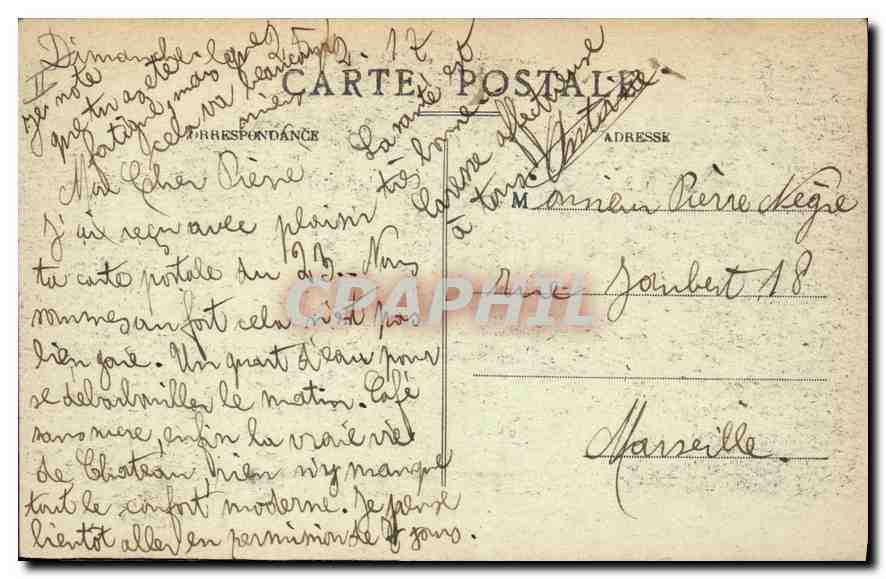 Dimanche le 2 12. 17
II
Je note
que tu as été
fatigué, mais que
cela va beaucoup
mieux
CARTE POSTALE
CORRESPONDANCE
ADRESSE
Mon Cher Pierre
J'ai reçu avec plaisir
ta carte postale du 23. Nous
sommes au fort cela n'est pas
bien gaie. Un quart d'eau pour
se debarbouiller le matin. Café
sans sucre, enfin la vraie vie
de Chateau, rien n'y manque
tout le confort moderne. Je pense
bientôt aller en permission de 7 jours.
La santé est
très bonne.
Caresse affectueuse
à tous. Antoine.
Monsieur Pierre Nègre
rue Joubert 18
Marseille.
CPAPHIL